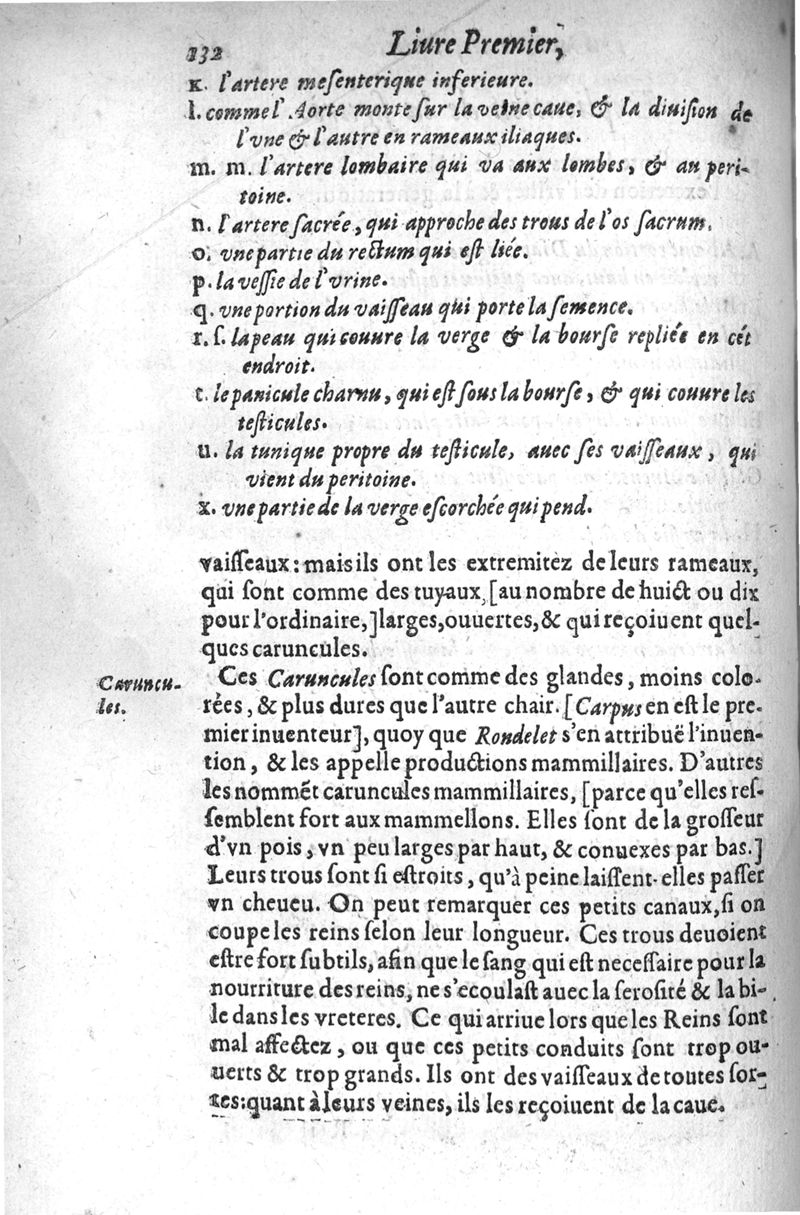 132 Liure Premier,
k. l'artere meſenterique inferieure.
l. comme l'Aorte monte ſur la veine caue, & la diuiſion de
l'vne & l'autre en rameaux iliaques.
m. m. l'artere lombaire qui va aux lombes, & au peri-
toine.
n. l'artere ſacrée, qui approche des trous de l'os ſacrum.
o. vne partie du rectum qui eſt liée.
p. la veſſie de l'vrine.
q. vne portion du vaiſſeau qui porte la ſemence.
r. ſ. la peau qui couure la verge & la bourſe repliée en cét
endroit.
t. le panicule charnu, qui eſt ſous la bourſe, & qui couure les
teſticules.
u. la tunique propre du teſticule, auec ſes vaiſſeaux, qui
vient du peritoine.
x. vne partie de la verge eſcorchée qui pend.
vaiſſeaux: mais ils ont les extremitez de leurs rameaux,
qui ſont comme des tuyaux, [au nombre de huict ou dix
pour l'ordinaire,] larges, ouuertes, & qui reçoiuent quel-
ques caruncules.
Caruncu-
les.
Ces Caruncules ſont comme des glandes, moins colo-
rées, & plus dures que l'autre chair. [Carpus en eſt le pre-
mier inuenteur], quoy que Rondelet s'en attribuë l'inuen-
tion, & les appelle productions mammillaires. D'autres
les nommēt caruncules mammillaires, [parce qu'elles reſ-
ſemblent fort aux mammellons. Elles ſont de la groſſeur
d'vn pois, vn peu larges par haut, & conuexes par bas.]
Leurs trous ſont ſi eſtroits, qu'à peine laiſſent-elles paſſer
vn cheueu. On peut remarquer ces petits canaux, ſi on
coupe les reins ſelon leur longueur. Ces trous deuoient
eſtre fort ſubtils, afin que le ſang qui eſt neceſſaire pour la
nourriture des reins, ne s'ecoulaſt auec la ſeroſité & la bi-
le dans les vreteres. Ce qui arriue lors que les Reins ſont
mal affectez, ou que ces petits conduits ſont trop ou-
uerts & trop grands. Ils ont des vaiſſeaux de toutes ſor-
tes: quant à leurs veines, ils les reçoiuent de la caue.